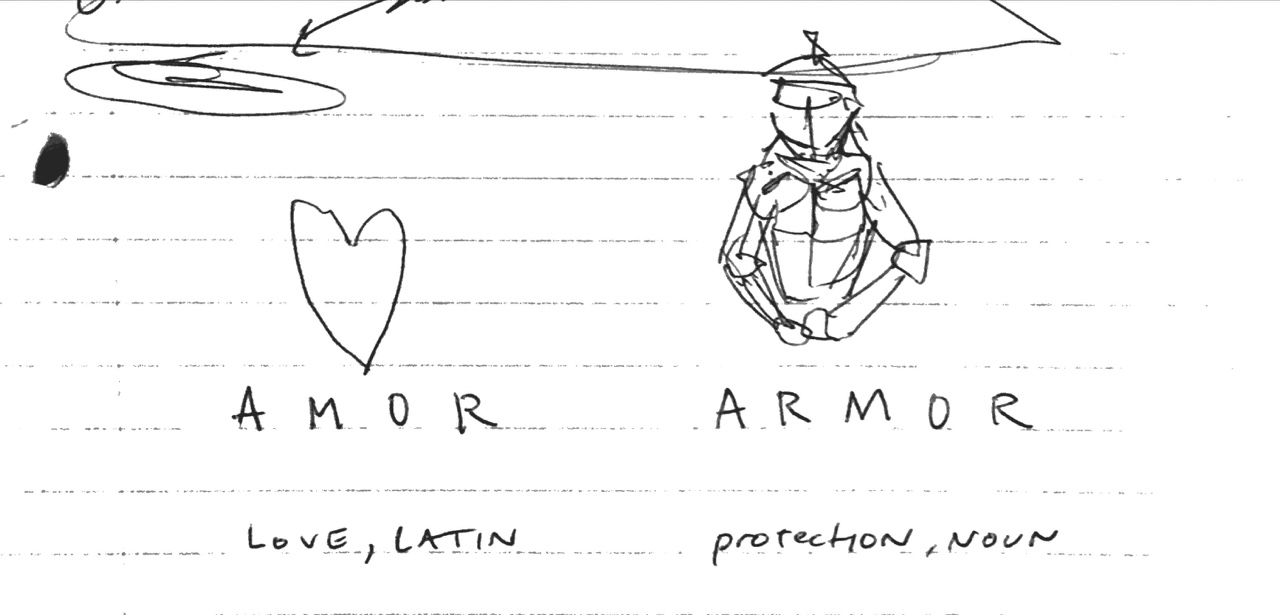 AMOR ARMOR
LOVE, LATIN protection, NOUN